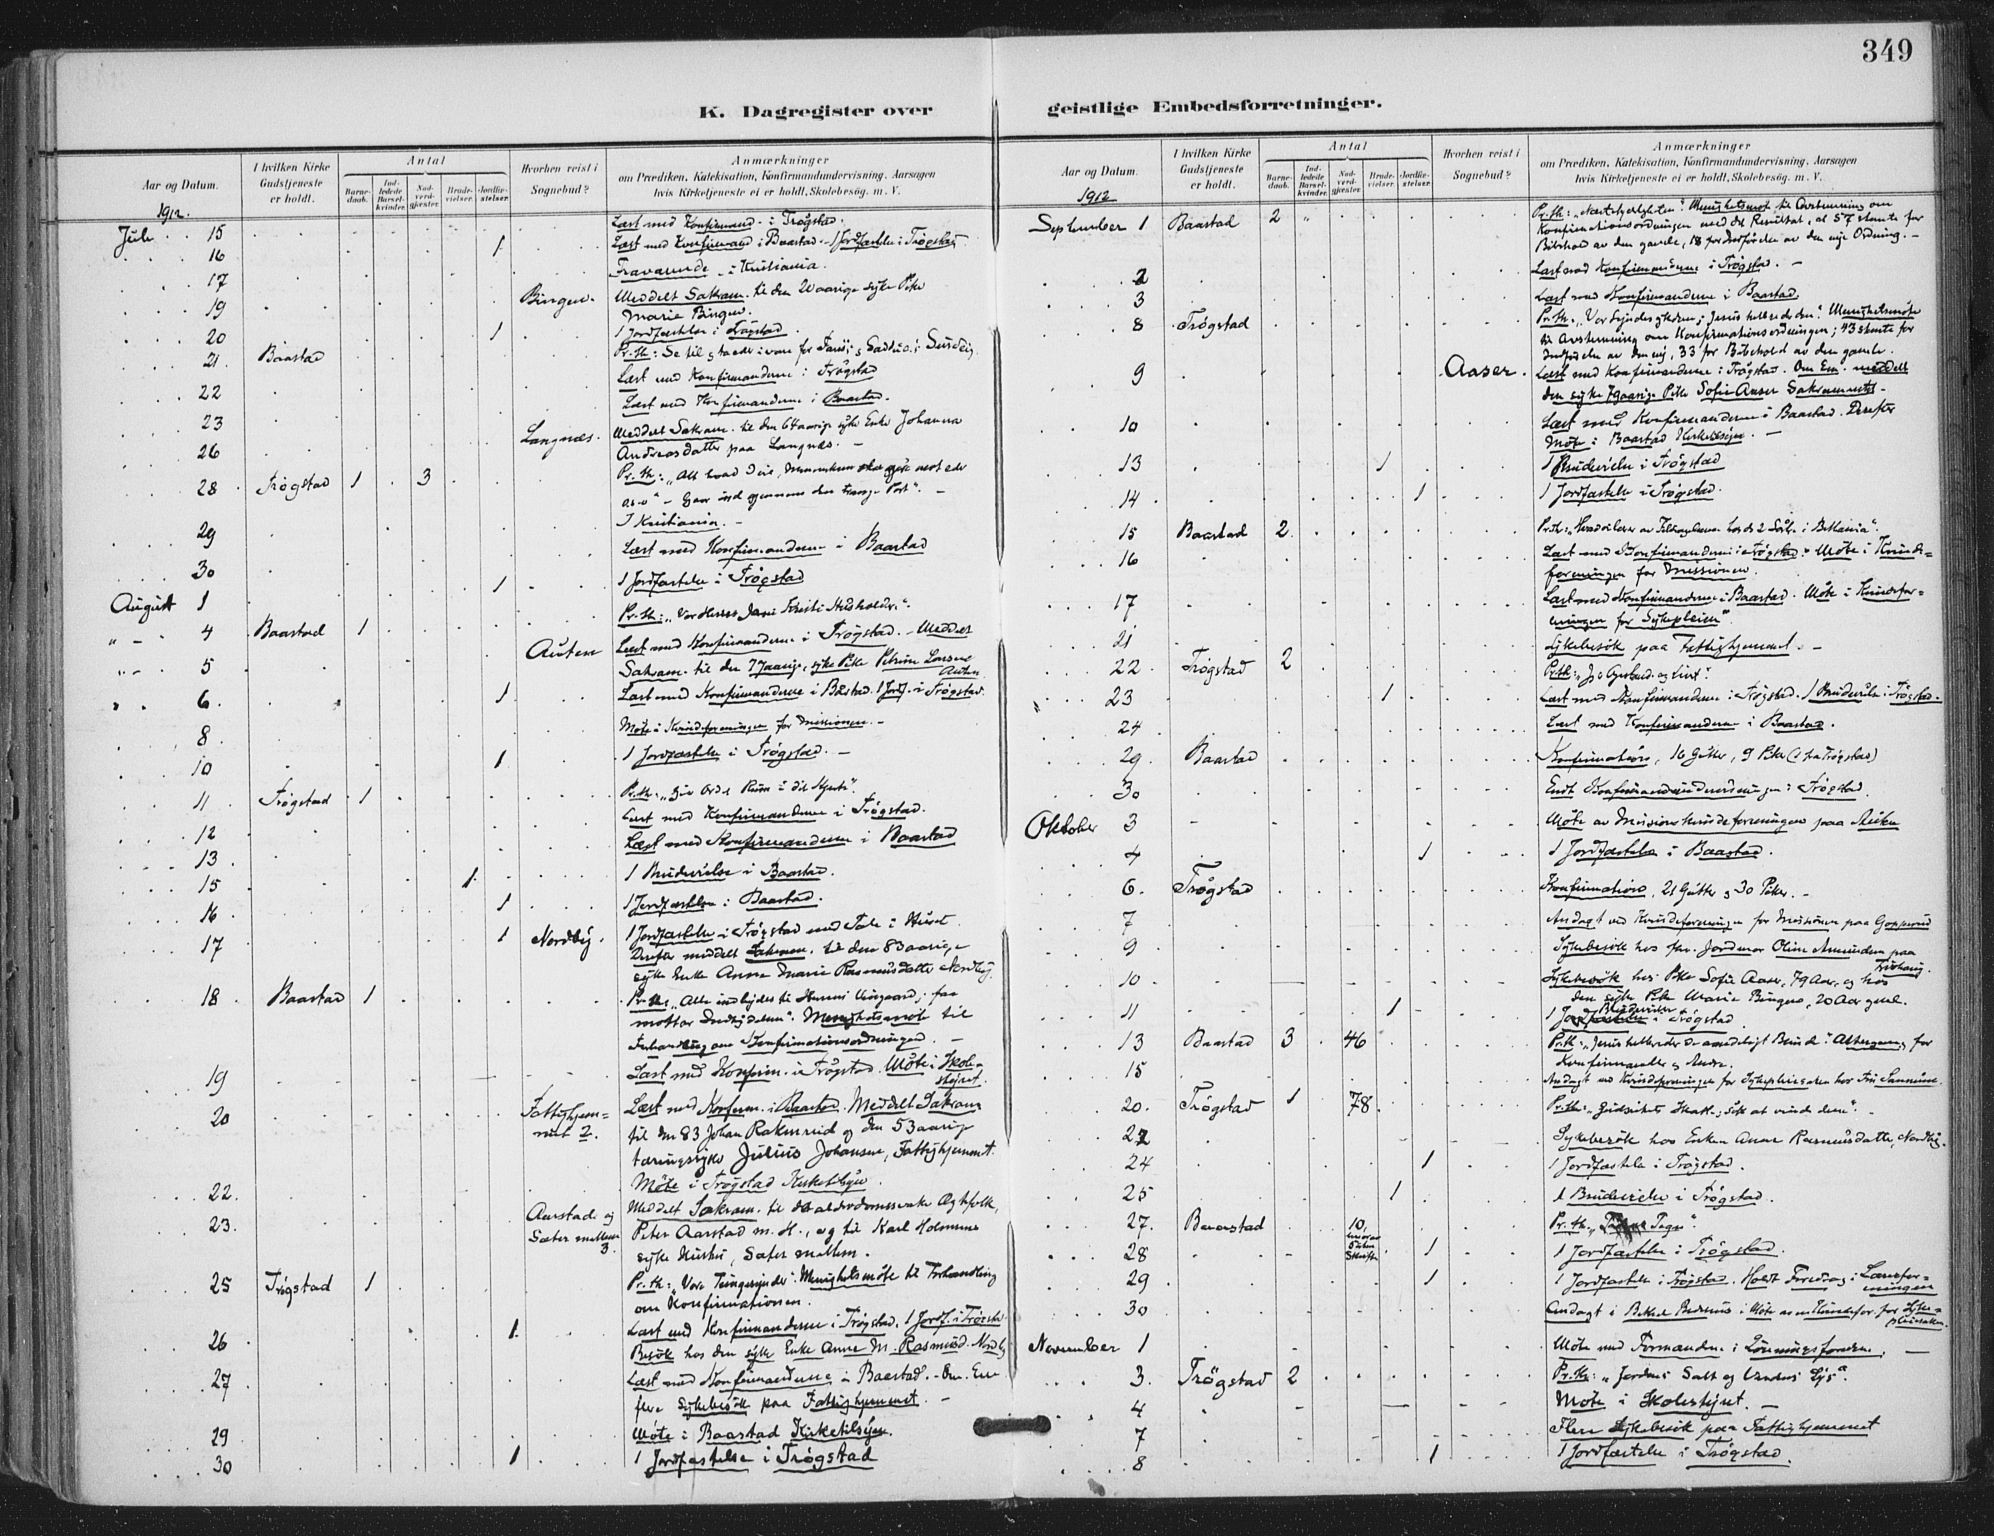 349
K. Dagregister over geistlige Embedsforretninger.
Aar og Datum.
I hvilken Kirke Gudstjeneste er holdt.
Antal
Barnedaab.
Indledede Barselkvinder.
Nadverdgjæster.
Brudevielser.
Jordfæstelser.
Hvorhen reist i Sognebud?
Anmærkninger
om Prædiken, Katekisation, Konfirmandundervisning. Aarsagen
hvis Kirketjeneste ei er holdt, Skolebesøg. m. V.
1912.
Juli 15 Læst med Konfirmand. i Trøgstad.
16 1 Læst med Konfirmand i Baastad. 1 Jordfæstelse i Trøgstad
17 Fraværende i Kristiania.
19 Bingen. Meddelt Sakram. til den 20 aarige syke Pike
Marie Bingen.
20 1 1 Jordfæstelse i Trøgstad.
21 Baastad Pr. th.:
22 Læst med Konfirmanderne i Trøgstad
23 Læst med Konfirmanderne i Baastad.
26 Langnæs. Meddelt Sakram. til den 64 aarige syke Enke Johanna
Andreasdatter paa Langnæs. –
28 Trøgstad 1 3 Pr. th.: "Alt hvad I vil, Menneskene skal gjøre mot eder
o.s.v." – Gaar ind gjennem den trange Port". –
29 I Kristiania. –
30 Læst med Konfirmanderne i Baastad
August 1 1 1 Jordfæstelse i Trøgstad
4 Baastad 1 Pr. th.: "Vor Herres Jesu Kristi Husholdr."
5 Austen Læst med Konfirmanderne i Trøgstad. – Meddelt
Sakram. til den 71 aarige, syke Pike Petrine
Austen
6 1 Læst med Konfirmanderne i Baastad. 1 Jordf. i Trøgstad
8 Møte i Kvindeforeningen for Missionen. –
10 1 1 Jordfæstelse i Trøgstad. –
11 Trøgstad 1 Pr. th.: "Giv Ordet Rum i dit Hjerte".
12 Læst med Konfirmanderne i Trøgstad.
13 Læst med Konfirmanderne i Baastad
15 1 1 Brudevielse i Baastad.
16 1 1 Jordfæstelse i Baastad.
17 1 Nordby. 1 Jordfæstelse i Trøgstad med Tale i Huset
Derefter meddelt Sakram. til den 83 aarige
syke Enke Anne Marie Rasmusdatter Nordby.
18 Baastad 1 Pr. th. "Alle indbydes til Herrens Vingaard; faa
mottar Indbydelsen". Menighetsmøte til
Forhandling om Konfirmationsordningen. –
19 Læst med Konfirm. i Trøgstad. Møte i Skolestyret.
20 Fattighjemmet 2. Læst med Konfirm. i Baastad. Meddelt Sakram
til den 83 Johan Rakneruid og den 53 aarig
tæringssyke Julius Johansen, Fattighjemmet.
22. Møte i Trøgstad Kirketilsyn.
23. Aarstad og Sæter mellem 3. Meddelt Sakram. til det alderdomssvake Ægtefolk,
Peter Aarstad m. H., og til Karl Holmens
syke Hustru, Sæter mellem.
25 Trøgstad 1 Pr. th.: "Vore Tungesynder". Menighetsmøte til Forhandling
om Konfirmationen.
26 1. Læst med Konfirmanderne i Trøgstad. 1 Jordf. i Trøgstad
Besøk hos den syke Enke Anne M. Rasmusd. Nordby
27 Læst med Konfirmanderne i Baastad. – Om. Em.
flere Sykebesøk paa Fattighjemmet. –
29 Møte i Baastad Kirketilsyn.
30 1 1 Jordfæstelse i Trøgstad
Aar og Datum.
I hvilken Kirke Gudstjeneste er holdt.
Antal
Barnedaab.
Indledede Barselkvinder.
Nadverdgjæster.
Brudevielser.
Jordfæstelser.
Hvorhen reist i Sognebud?
Anmærkninger
om Prædiken, Katekisation, Konfirmandundervisning. Aarsagen
hvis Kirketjeneste ei er holdt, Skolebesøg. m. V.
1912
September 1 Baastad 2 " Pr. th.: "Næstekjærligheten." Menighetsmøte til Avstemning om
Konfirmationsordningen med det Resultat, at 57 stemte for
Bibehold av den gamle, 18 for Indførelse av den nye Ordning. –
2 Læst med Konfirmanderne i Trøgstad. –
3 Læst med Konfirmanderne i Baastad.
8 Trøgstad Pr. th.: "Vor Syndesygdom; Jesus helbreder den". Menighetsmøte
til Avstemning om Konfirmationsordningen; 43 stemte for
Indførelse av den ny, 33 for Bibehold av den gamle.
9 Aaser. Læst med Konfirmanderne i Trøgstad. Om Em. meddelt
den syke 79 aarige Pike Sofie Aaser Sakramentet. –
10 Læst med Konfirmanderne i Baastad. Derefter
Møte i Baastad Kirketilsyn. –
13 1 1 Brudevielse i Trøgstad
14 1 1 Jordfæstelse i Trøgstad.
15 Baastad 2. Pr. th.:
16 Læst med Konfirmanderne i Trøgstad. Møte i Kvindeforeningen
for Missionen.
17 Læst med Konfirmanderne i Baastad. Møte i Kvindeforeningen
for Sykepleien".
21 Sykebesøk paa Fattighjemmet. –
22 Trøgstad 2 Pr. th.:
23 1 Læst med Konfirmanderne i Trøgstad. 1 Brudevielse i Trøgstad.
24 Læst med Konfirmanderne i Baastad.
29 Baastad Konfirmation, 16 Gutter, 9 Piker (fra Trøgstad)
30 Endt Konfirmandundervisningen i Trøgstad.
Oktober 3 Møte av Missionskvindeforeningen paa
4 1 1 Jordfæstelse i Baastad.
6. Trøgstad Konfirmation, 21 Gutter og 30 Piker. –
7 Andagt ved Kvindeforeningen for Missionen paa Gopperud
9 Sykebesøk hos fhv. Jordmor Oline Amundsen paa
10 Sykebesøk hos Pike Sofie Aaser, 79 Aar, og hos
den syke Pike Marie Bingen, 20 Aar gml.
11 1 1 Brudevielse i Trøgstad
13 Baastad 3 46 Pr. th.: "Jesus helbreder
Altergang for
Konfirmander og Andre.
15 Andagt ved Kvindeforeningen for Sykepleiesaken hos Fru
20. Trøgstad 1 78. Pr. th.: "Gudsrikets Skatt; søk at vinde den". –
22 Sykebesøk hos Enken Anne Rasmusdatter, Nordby.
24 1 1 Jordfæstelse i Trøgstad.
25 1 1 Brudevielse i Trøgstad.
27. Baastad 10, hvorav Pr. th. "Tidens Tegn".
28 1 1 Jordfæstelse i Trøgstad.
29 1 1 Jordfæstelse i Trøgstad. Holdt Foredrag i
30 Andagt i Møte
November 1 Møte med Formændene i
3. Trøgstad 2 Pr. th.: "Jordens Salt og Verdens Lys".
4 Møte i Skolestyret. –
7 Flere Sykebesøk paa Fattighjemmet
8 1 1 Jordfæstelse i Trøgstad.